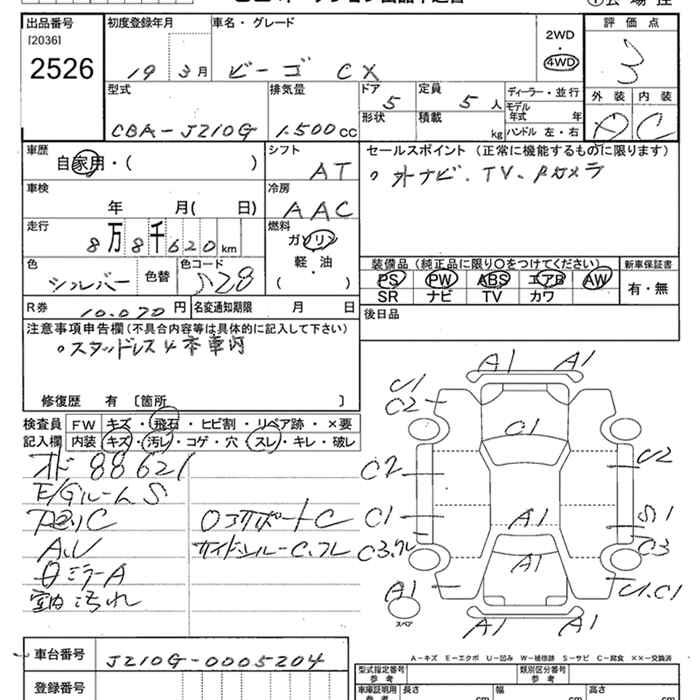 出品番号
[2036]
2526
初度登録年月
19年 3月
車名・グレード
ビーゴ CX
2WD
・
4WD
評価点
3
外装 内装
A C
型式
CBA-J210G
排気量
1.500cc
ドア
5
形状
定員
5人
積載
kg
ディーラー・並行
モデル年式 年
ハンドル 左・右
車歴
自家用・( )
車検
年 月( 日)
走行
8万8千620km
色
シルバー
色替
色コード
S28
シフト
AT
冷房
AAC
燃料
ガソリン
軽・油
( )
セールスポイント (正常に機能するものに限ります)
○外ナビ、TV、Bカメラ
装備品 (純正品に限り○をつけてください)
PS PW ABS エアB AW
SR ナビ TV カワ
新車保証書
有・無
後日品
R券 10.070円
名変通知期限 月 日
注意事項申告欄 (不具合内容等は具体的に記入して下さい)
○スタッドレス4本車内
修復歴 有 〔箇所 〕
検査員記入欄
FW キズ・飛石・ヒビ割・リペア跡・×要
内装 キズ・汚レ・コゲ・穴・スレ・キレ・破レ
オド 88621
E/Gルーム S
下廻りC
A.U
ミラーA
室内汚れ
コアサポートC
サイドシルーC.クレ
A1 A1
U1
C2
C1
C2
U2
C1
A1
S1
C3.クレ
C3
A1
A1
U.C1
スペア
A1 A1
A-キズ E-エクボ U-凹み W-補修跡 S-サビ C-腐食 ××-交換済
車台番号 J210G-0005204
登録番号
型式指定番号 参考
類別区分番号 参考
車庫証明用 参考
長さ cm
幅 cm
高さ cm